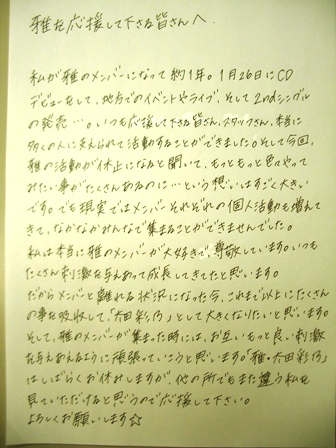 雅を応援して下さる皆さんへ
私が雅のメンバーになって約1年。1月26日にCD
デビューをして、地方でのイベントやライブ、そして2ndシングル
の発売…。いつも応援して下さる皆さん、スタッフさん、本当に
多くの人に支えられて活動することができました。そして今回、
雅の活動が休止になると聞いて、もっともっと色々やって
みたい事がたくさんあるのに…という想いはすごく大きい
です。でも現実ではメンバーそれぞれの個人活動も増えて
きて、なかなかみんなで集まることができませんでした。
私は本当に雅のメンバーが大好きで、尊敬しています。いつも
たくさん刺激を与えあって成長してきたと思います。
だからメンバーと離れる状況になった今、これまで以上にたくさん
の事を吸収して、「太田彩乃」として大きくなりたいと思います。
そして、雅のメンバーが集まった時には、お互いもっと良い刺激
を与えあえるように頑張っていこうと思います。「雅・太田彩乃」
はしばらくお休みしますが、他の所でもまた違う私を
見ていただけると思うので応援して下さい。
よろしくお願いします☆